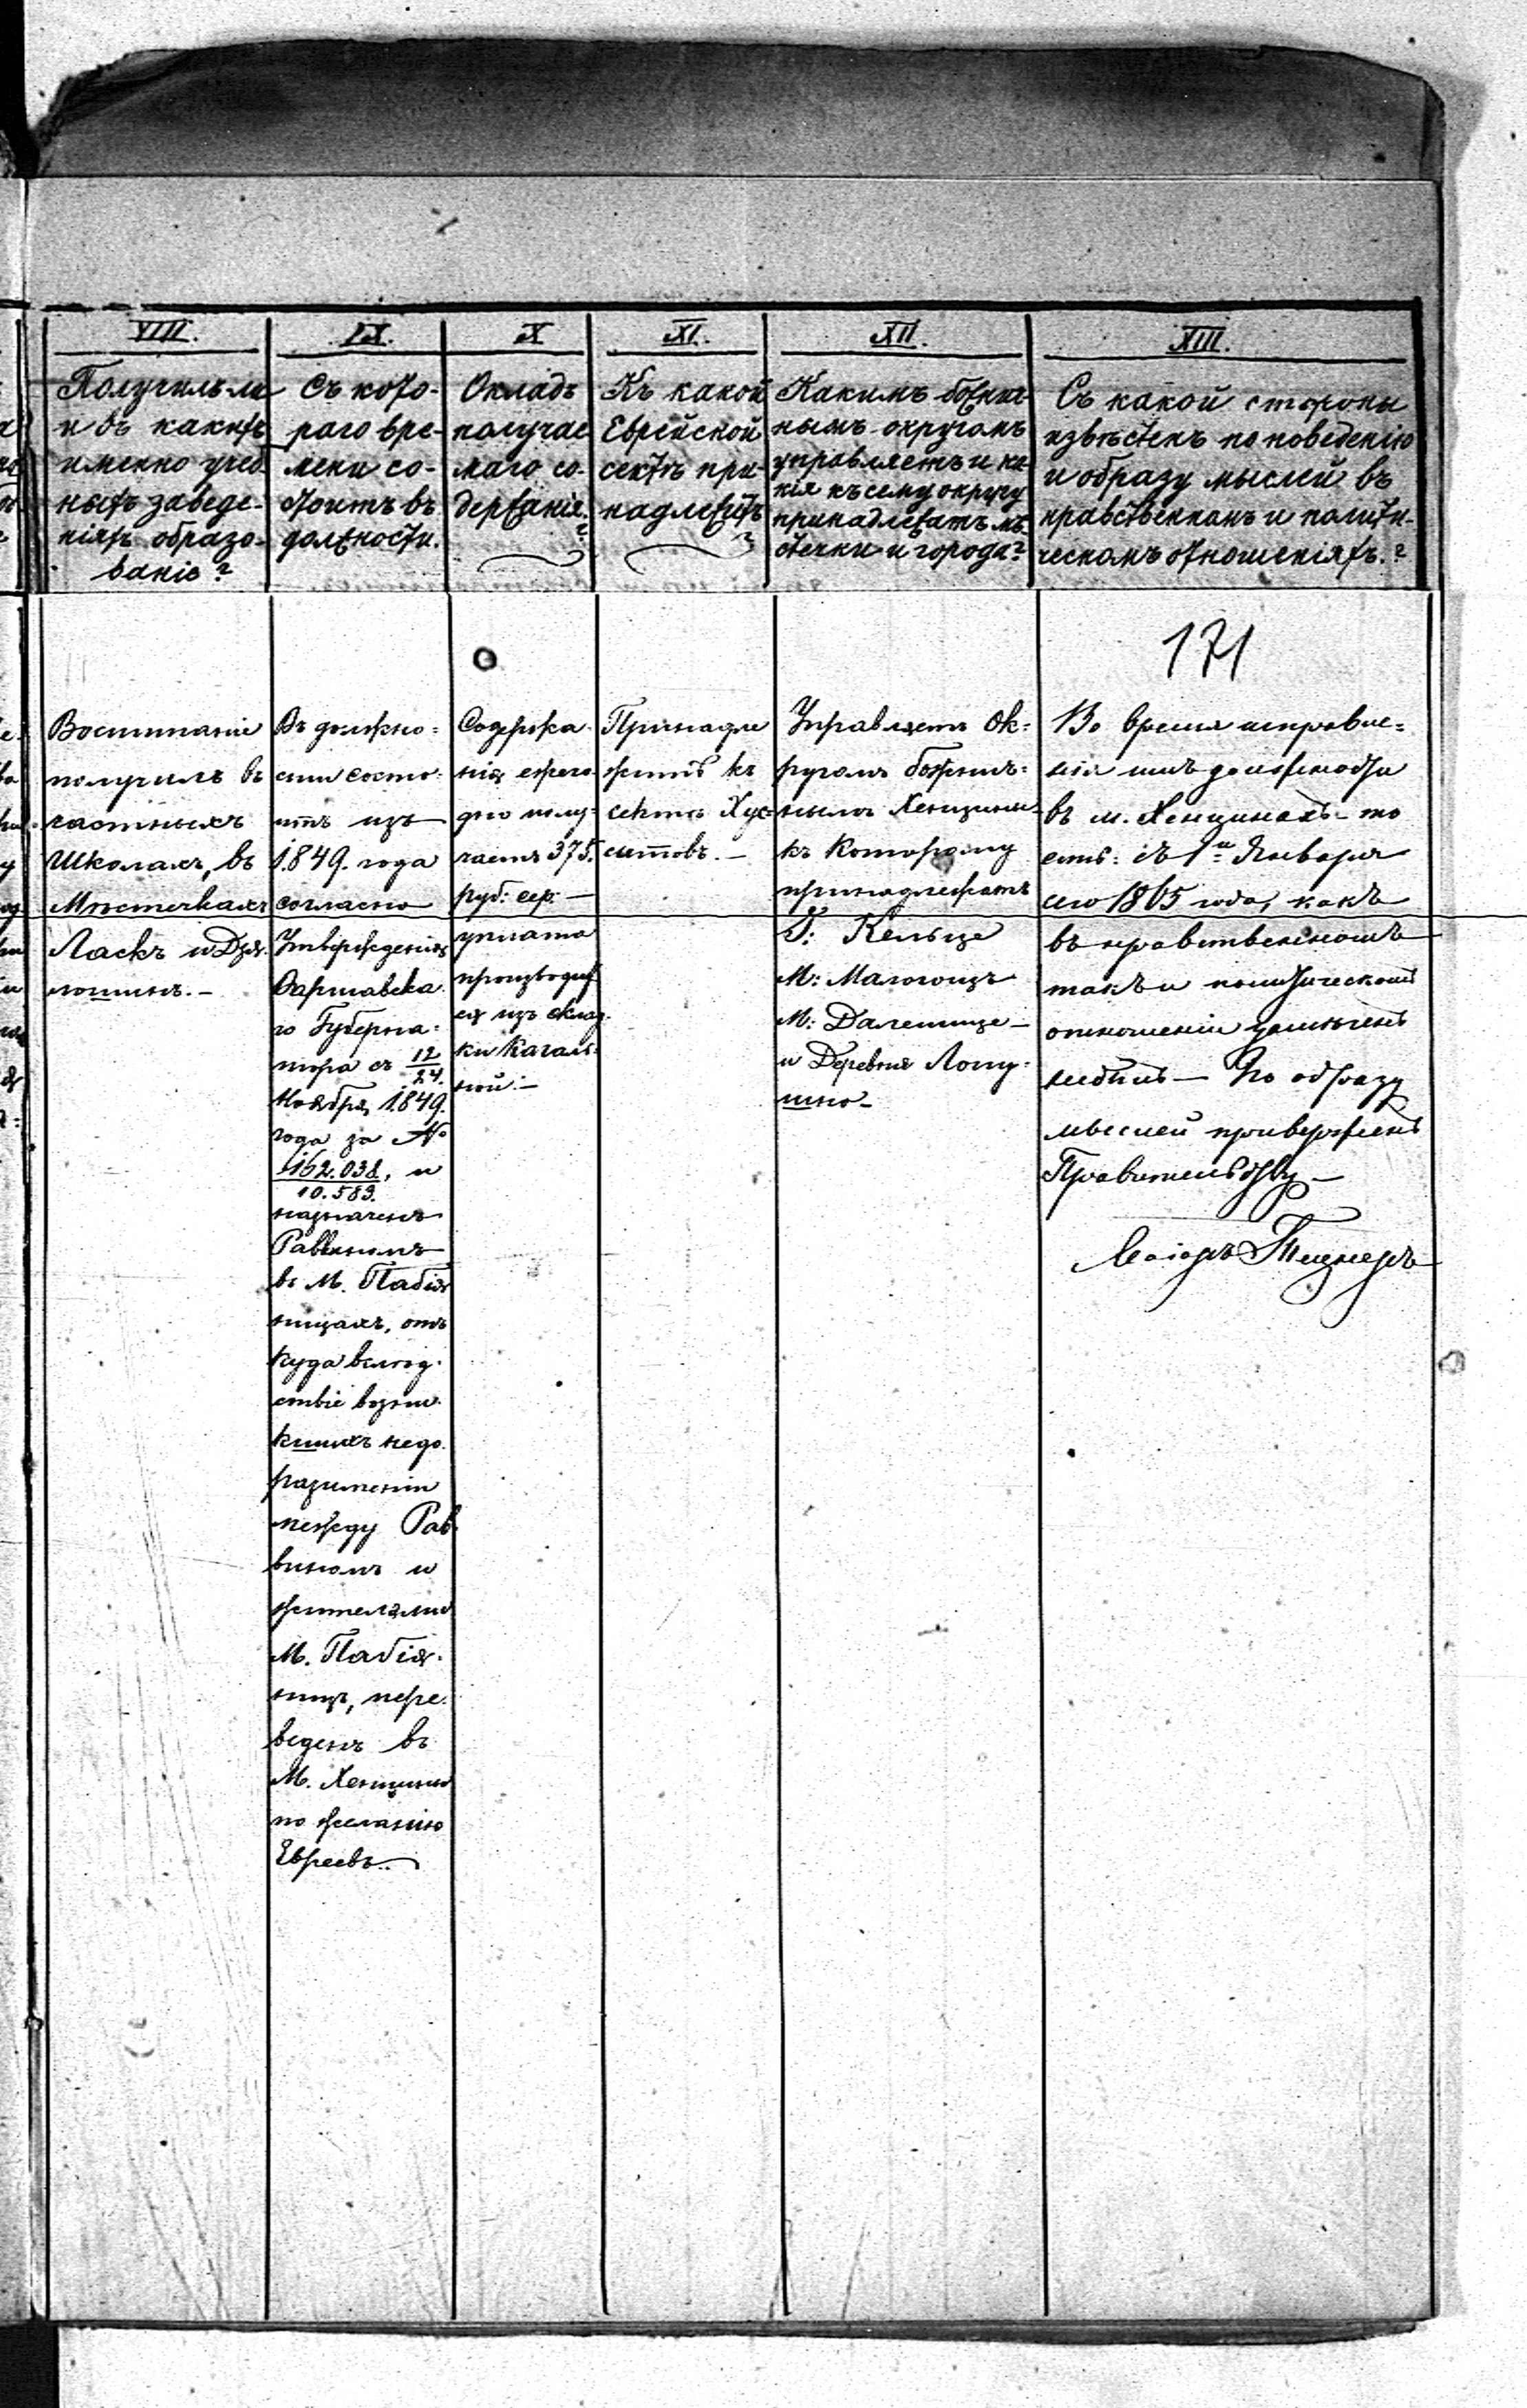 VIII.
Получилъ ли
и въ какихъ
именно учеб
ныхъ заведе-
ніяхъ образо-
ваніе?
IX.
Съ кото-
раго вре-
мени со-
стоитъ въ
должности.
X
Окладъ
получае
маго со-
держанія.
?
XI.
Къ какой
Еврейской
сектѣ при-
надлежитъ
?
XII.
Какимъ божнич-
нымъ округомъ
управляетъ и ка-
кія къ сему округу
принадлежатъ мѣ
стечки и города?
XIII.
Съ какой стороны
извѣстенъ по поведенію
и образу мыслей въ
нравственномъ и полити-
ческомъ отношеніяхъ.?
171
Воспитаніе
получилъ въ
частныхъ
Школахъ, въ
Мѣстечкахъ
Ласкъ и Дзя-
лошинъ.-
Въ должно=
сти состо-
итъ изъ
1849. года
согласно
Утвержденія
Варшавска-
го Губерна-
тора съ 12/24.
Ноября 1849.
года за №
162.038, и
10.583.
назначенъ
Раввиномъ
въ М. Пабія
ницахъ, отъ
куда вслѣд-
ствіе возни-
кшихъ недо-
разуменіи
между Рав
виномъ и
жителями
М. Пабія-
ницъ, пере-
веденъ въ
М. Хенцины
по желанію
Евреевъ.
Содержа-
нія ежего-
дно полу-
чаетъ 375.
руб: сер: —
уплата
производит
ся изъ склад-
ки Кагаль-
ной: —
Принадле
житъ къ
сектѣ Хус=
ситовъ. —
Управляетъ Ок=
ругомъ божнич=
нымъ Хенцины
къ Которому
принадлежатъ
Г: Кельце
М: Малогощъ
М: Далешице —
и Деревня Лопу-
шно —
Во время исправле=
нія имъ должности
въ м. Хенцинахъ — то
есть: съ 1го Января
сего 1865 года, какъ
въ нравственномъ
такъ и политическомъ
отношеніи
— По образу
мыслей приверженъ
Правительству —
Маіоръ